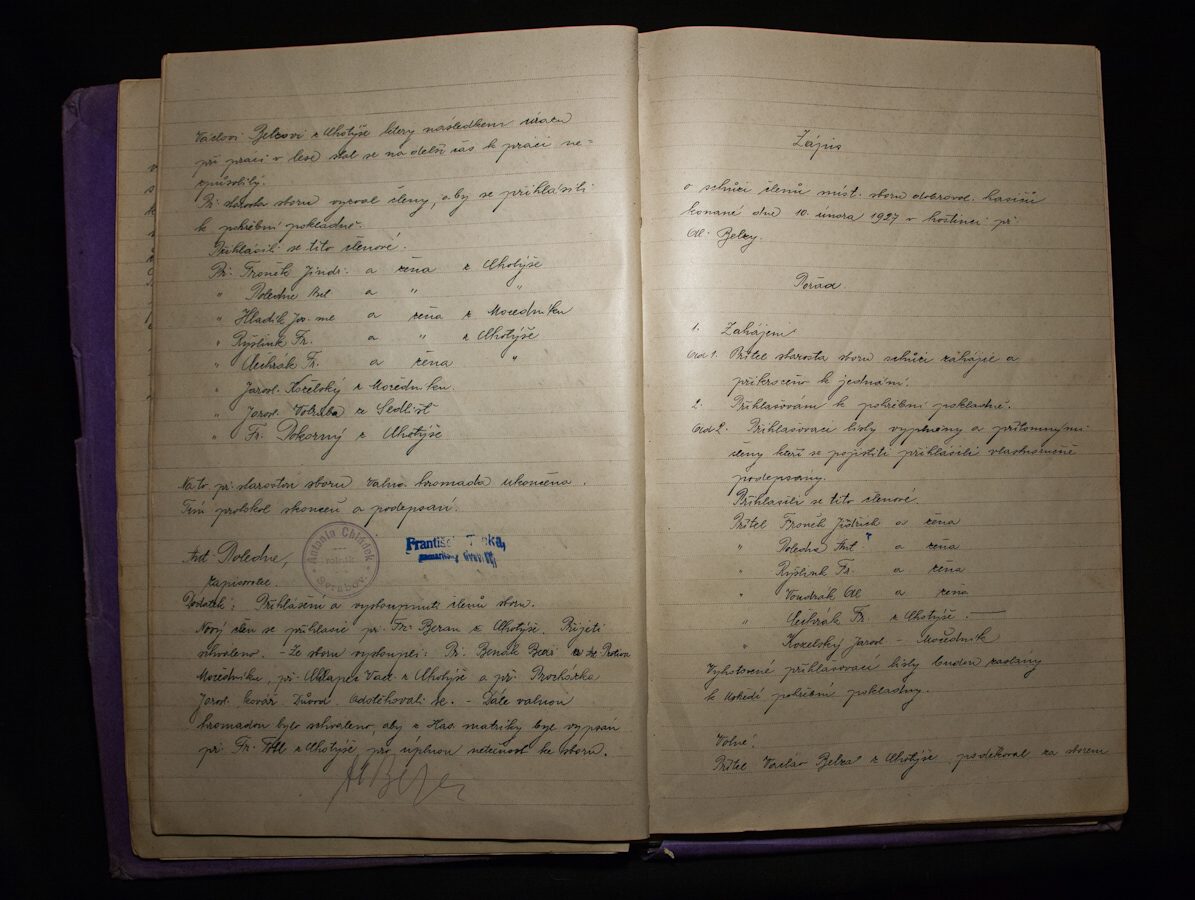 Václovi Belzovi z Lhotýše který následkem úrazu
při práci v lese stal se na delší čas k práci ne=
způsobilý.
Př. starosta sboru vyzval členy, aby se přihlásili
k pohřební pokladně.
Přihlásili se tito členové.
Př. Froněk Jindr. a žena z Lhotýše
" Poledne Ant a " "
" Hladík Jos. a žena z Mozedníku
" Ryšlink Fr. a " z Lhotýše
" Fr. a žena "
" Jarosl. Kozelský z Mozedníku.
" Jarosl. Votruba ze Sedlišť
" Fr. Pokorný z Lhotýše
Na to př. starostou sboru valná hromada ukončena.
Tím protokol skončen a podepsán.
Ant Poledne,
zapisovatel.
Antonín Chládek
rolník
František
Dodatek: Přihlášení a vystoupnutí členů sboru.
Nový člen se přihlásil př. Fr. Beran z Lhotýše. Přijetí
schváleno. - Ze sboru vystoupili: Př. Benák
Mozedníku, př. Václ. z Lhotýše a př. Procházka
Jarosl. kovář Důvod Odstěhovali se. - Dále valnou
hromadou bylo schváleno, aby z Has. matriky byl vypsán
př. Fr. z Lhotýše pro úplnou netečnost ke sboru.
Zápis
o schůzi členů míst. sboru dobrovol. hasičů
konané dne 10. února 1927 v hostinci př
Al. Belzy.
Pořad
1. Zahájení
Ad 1. Přítel starosta sboru schůzi zahájil a
přikročeno k jednání.
2. Přihlašování k pohřební pokladně.
Ad 2. Přihlašovací listy vyplněny a přítomnými
členy kteří se pojistiti přihlásili vlastnoručně
podepsány.
Přihlásili se tito členové.
Přítel Froněk Jindřich a žena
" Poledne Ant a žena
" Ryšlink Fr. a žena
" Voudrák Al a žena
" Fr. z Lhotýše. —
" Kozelský Jarosl - Mozedník
Vyhotovené přihlašovací listy budou zaslány
k pohřební pokladny.
Volné.
Přítel Václav Belza z Lhotýše poděkoval za sborem